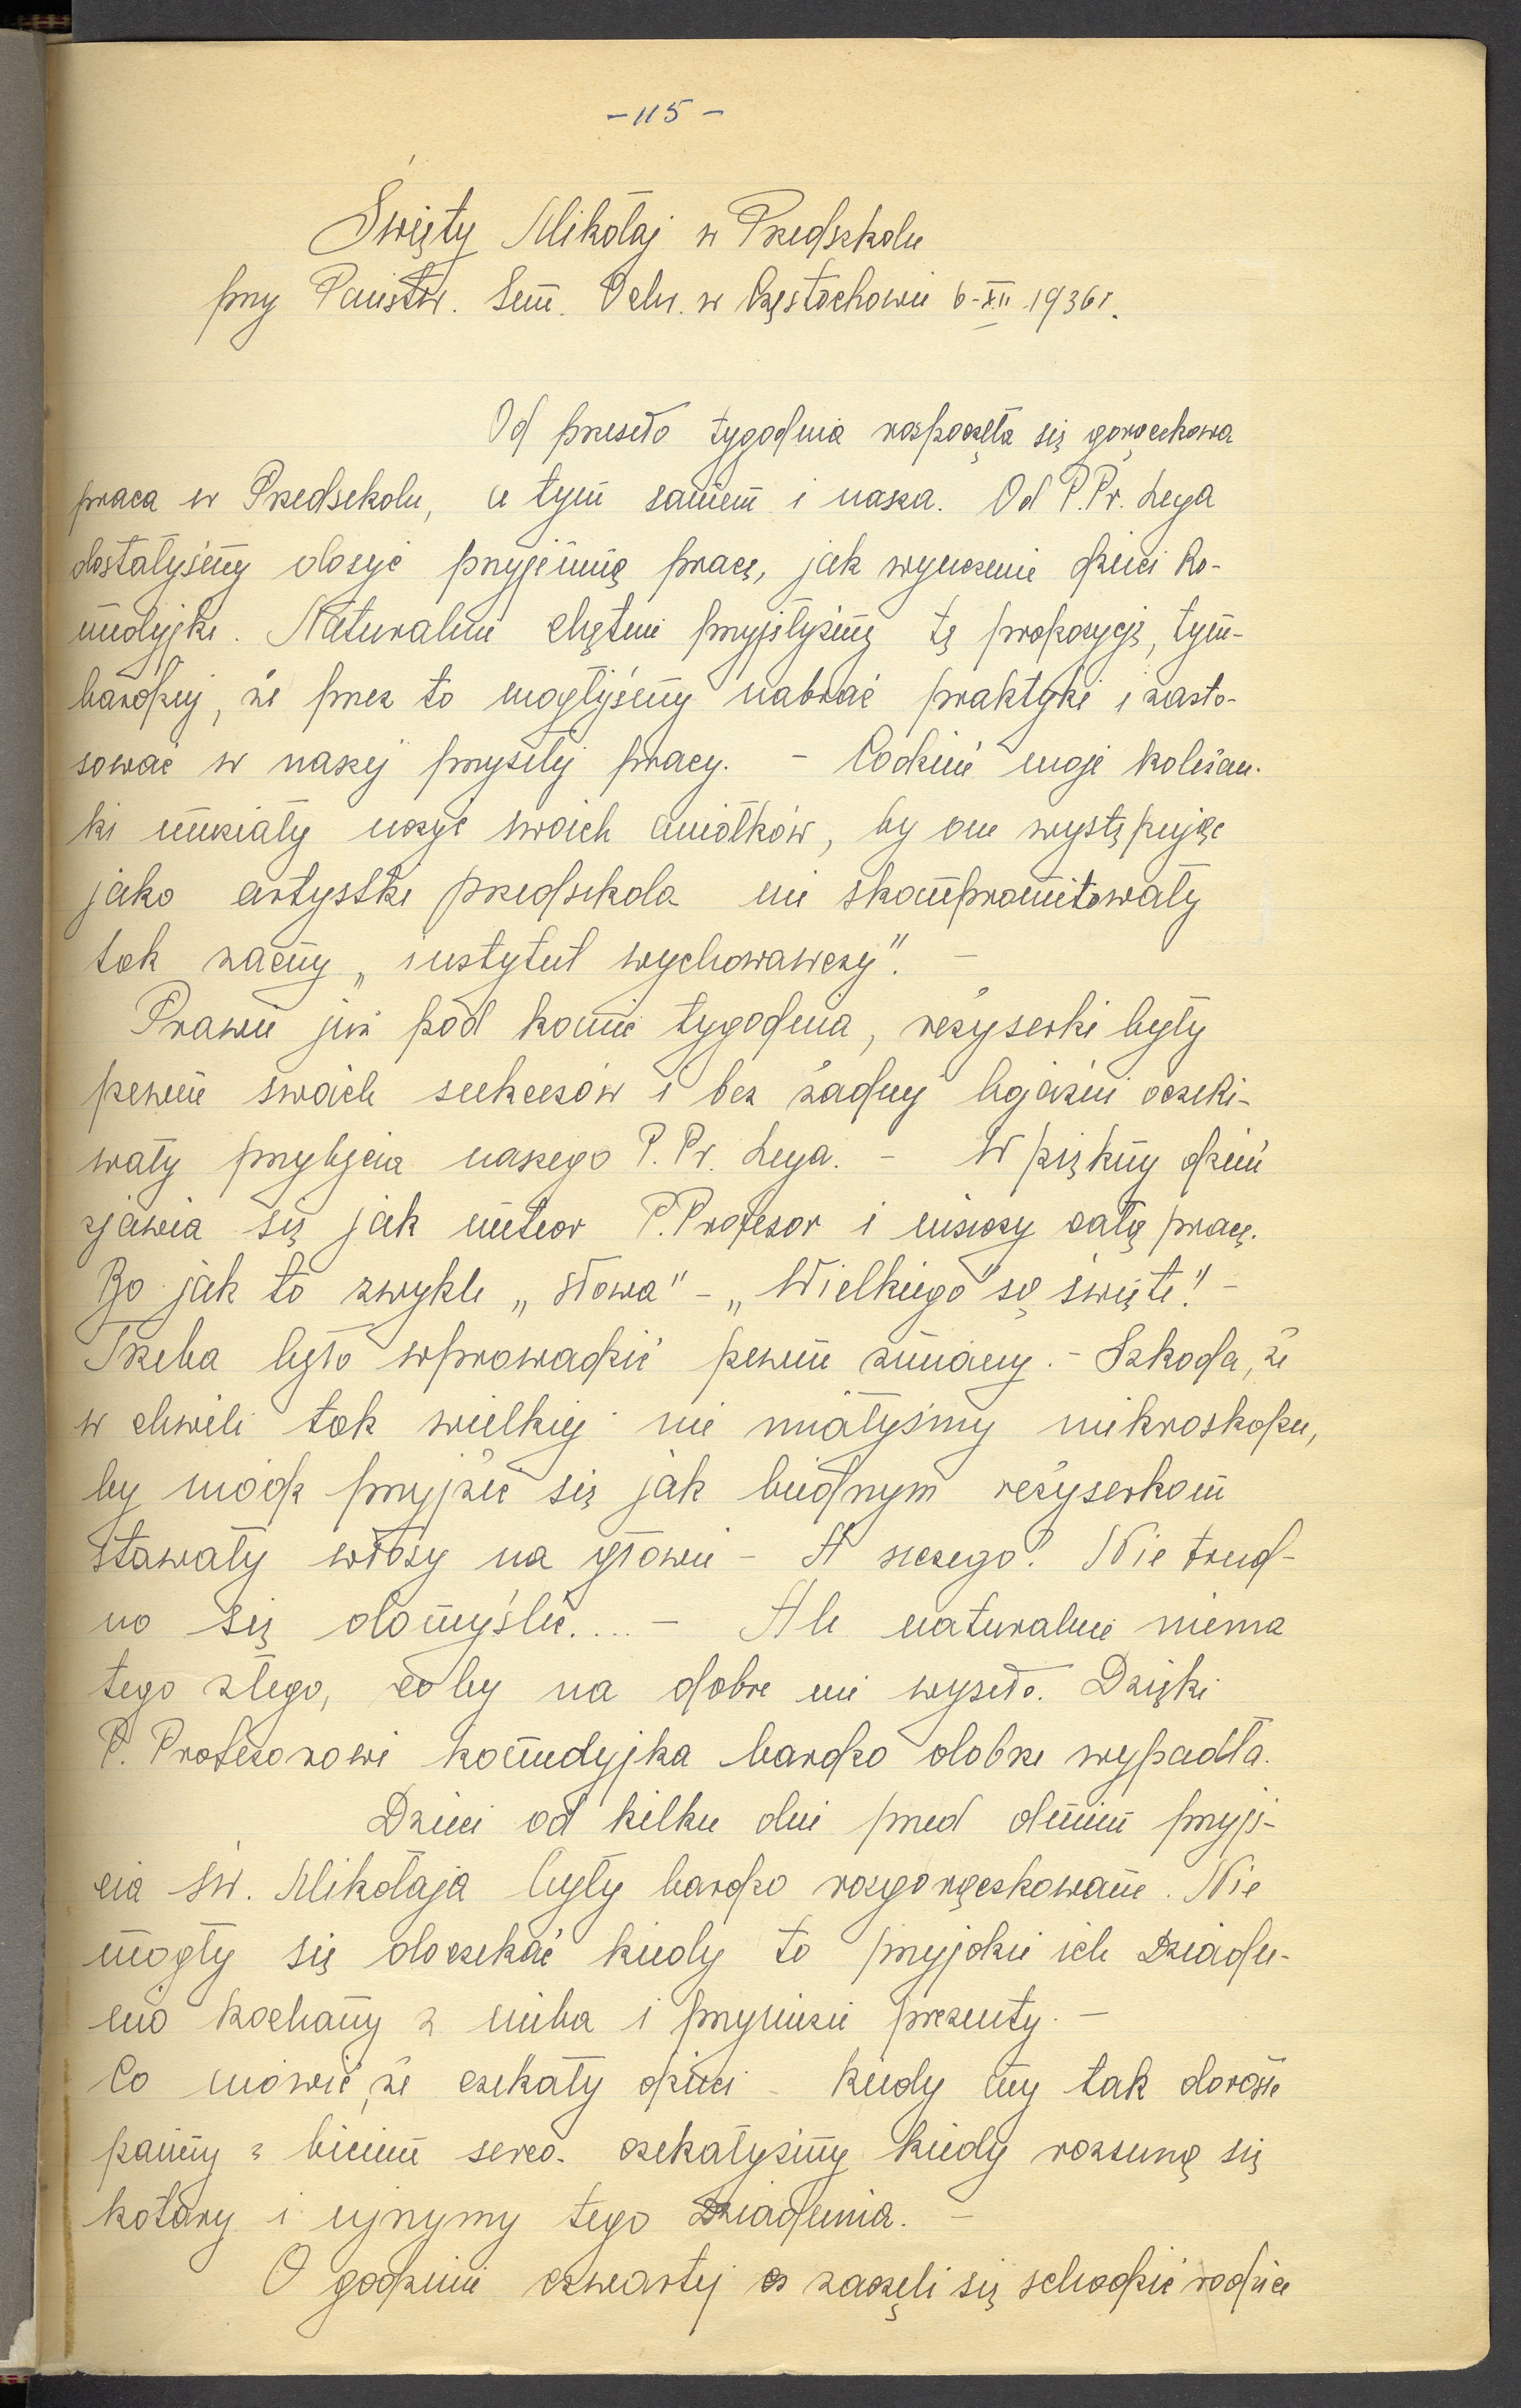 - 115 -
Święty Mikołaj w Przedszkolu
przy Państw. Sem. Ochr. w Częstochowie 6-XII 1936r.
Od przeszło tygodnia rozpoczęła się gorączkowa
praca w Przedszkolu, a tym samem i nasza. Od P.Pr. Lega
dostałyśmy dosyć przyjemną pracę, jak wyuczenie dzieci ko-
medyjki. Naturalnie chętnie przyjęłyśmy tę propozycję, tym-
bardziej, że przez to mogłyśmy nabrać praktyki i zasto-
sować w naszej przyszłej pracy. - Codzień moje koleżan-
ki musiały uczyć swoich aniołków, by one występując
jako artystki przedszkola nie skompromitowały
tak zacny „instytut wychowawczy". -
Prawie już pod koniec tygodnia, reżyserki były
pewne swoich sukcesów i bez żadnej bojaźni oczeki-
wały przybycia naszego P. Pr. Lega. - W piękny dzień
zjawia się jak meteor P. Profesor i niszczy całą pracę.
Bo jak to zwykle „słowa" - „Wielkiego" są święte! -
Trzeba było wprowadzić pewne zmiany. - Szkoda, że
w chwili tak wielkiej nie miałyśmy mikroskopu,
by módz przyjżeć się jak biednym reżyserkom
stawały włosy na głowie - A z czego? Nie trud-
no się domyśleć.... - Ale naturalnie niema
tego złego, coby na dobre nie wyszło. Dzięki
P. Profesorowi komedyjka bardzo dobrze wypadła.
Dzieci od kilku dni przed dniem przyjś-
cia św. Mikołaja były bardzo rozgorączkowane. Nie
mogły się doczekać kiedy to przyjdzie ich Dziadu-
nio kochany z nieba i przyniesie prezenty. -
Co mówić, że czekały dzieci - kiedy my tak dorosłe
panny z biciem serca czekałyśmy kiedy rozsuną się
kotary i ujrzymy tego Dziadunia. -
O godzinie czwartej zaczęli się schodzić rodzice